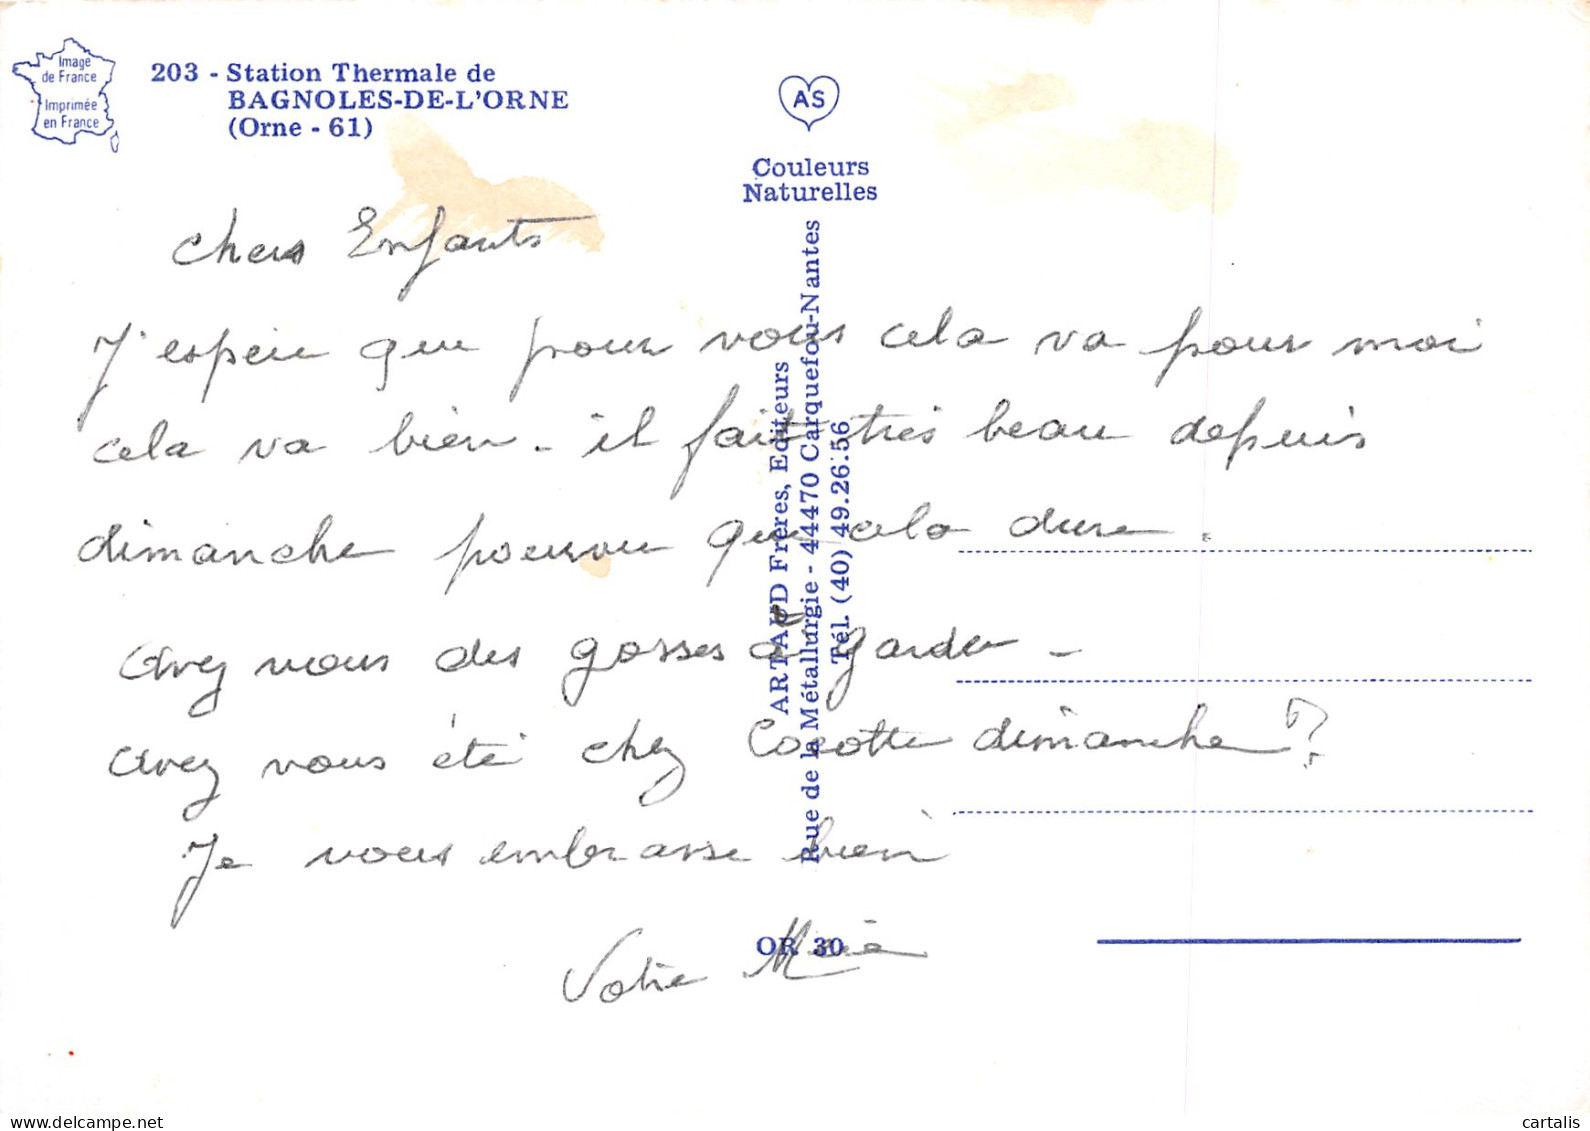 Image
de France
Imprimée
en France
203 - Station Thermale de
BAGNOLES-DE-L'ORNE
(Orne - 61)
AS
Couleurs
Naturelles
ARTAUD Frères, Editeurs
Rue de la Métallurgie - 44470 Carquefou-Nantes
Tél. (40) 49.26.56
OR 30
Chers Enfants
J'espère que pour vous cela va pour moi
cela va bien - il fait très beau depuis
dimanche pourvu que cela dure.
avez vous des gosses à garder -
avez vous été chez Cocotte dimanche ?
Je vous embrasse bien
Votre
cartalis
www.delcampe.net